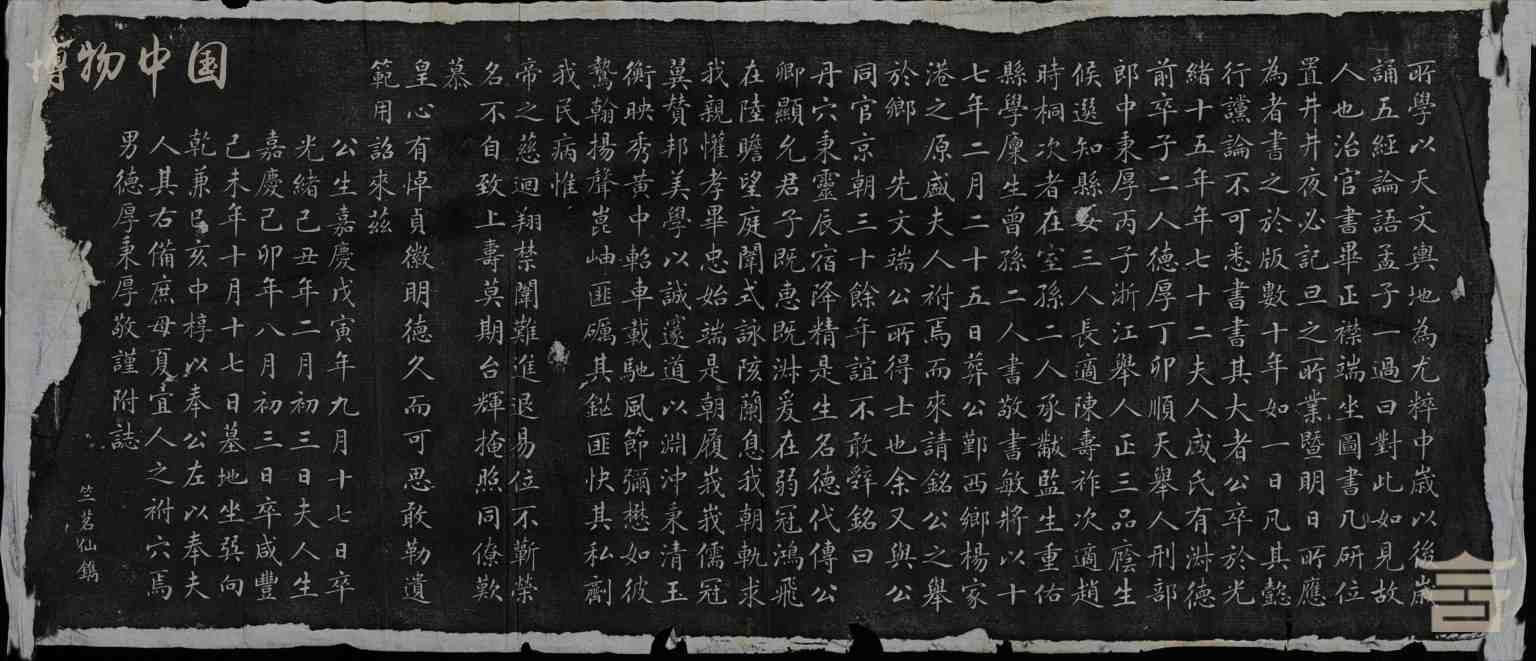 博物中国
所學以天文輿地為尤粹中歲以後歲
誦五經論語孟子一過曰對此如見故
人也治官書畢正襟端坐圖書几研位
置井井夜必記旦之所業暨明日所應
為者書之於版數十年如一日凡其懿
行讜論不可悉書書其大者公卒於光
緒十五年年七十二夫人戚氏有淑德
前卒子二人德厚丁卯順天舉人刑部
郎中秉厚丙子浙江舉人正三品廕生
候選知縣女三人長適陳壽祚次適趙
時桐次者在室孫二人承黻監生重佑
縣學廩生曾孫二人書敬書敏將以十
七年二月二十五日葬公鄞西鄉楊家
港之原戚夫人祔焉而來請銘公之舉
於鄉先文端公所得士也余又與公
同官京朝三十餘年誼不敢辭銘曰
丹穴秉靈辰宿降精是生名德代傳公
卿顯允君子既惠既淑爰在弱冠鴻飛
在陸瞻望庭闈式詠陔蘭息我朝軌求
我親懽孝畢忠始端是朝履峩峩儒冠
翼贊邦美學以誠邃道以淵沖秉清玉
衡映秀黃中軺車載馳風節彌懋如彼
鷙翰揚聲崑岫匪礪其鎹匪快其私劑
我民病惟
帝之慈迴翔禁闥難進退易位不蘄榮
名不自致上壽莫期台輝掩照同僚歎
慕
皇心有悼貞徽明德久而可思敢勒遺
範用詔來茲
公生嘉慶戊寅年九月十七日卒
光緒己丑年二月初三日夫人生
嘉慶己卯年八月初三日卒咸豐
己未年十月十七日墓地坐巽向
乾兼巳亥中槨以奉公左以奉夫
人其右備庶母夏宜人之祔穴焉
男德厚秉厚敬謹附誌
竺茗仙鐫